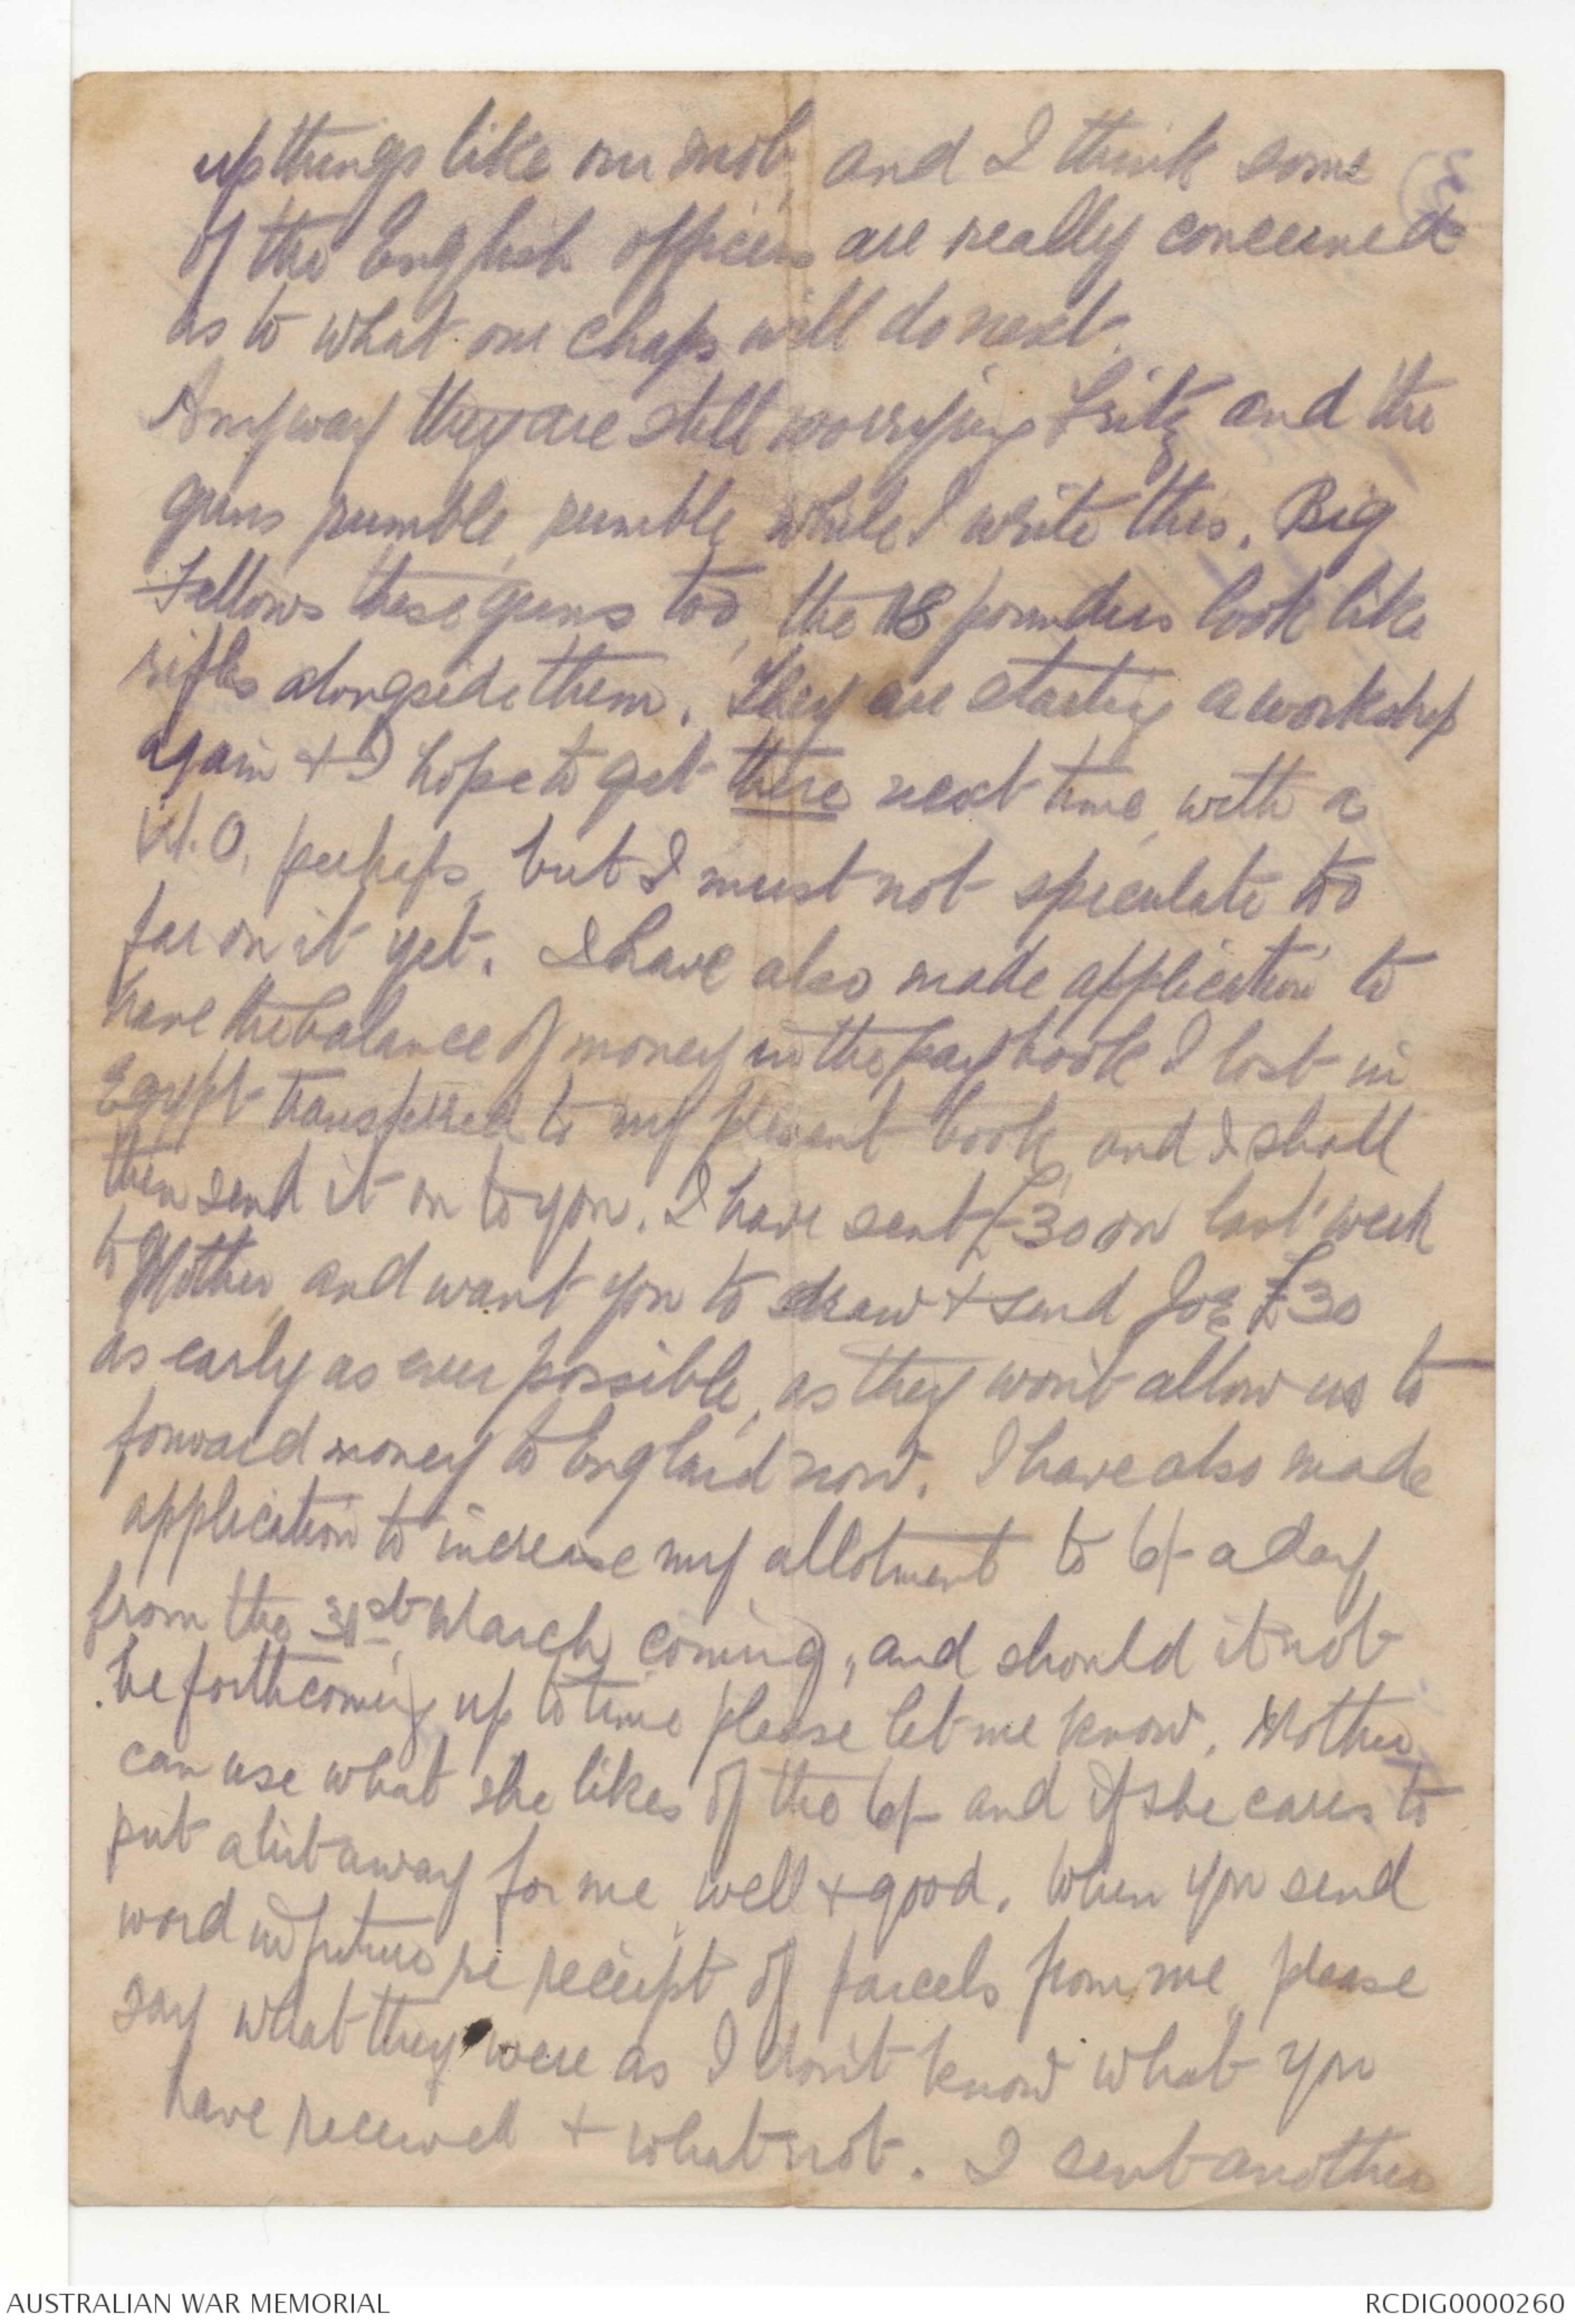 (3)
up things like our mob, and I think some
of the English officers are really concerned
as to what our chaps will do next.
Anyway they are still worrying Fritz and the
guns rumble, rumble, while I write this. Big
Fellows these guns too, the 18 pounders look like
rifles alongside them. They are starting a workshop
again + I hope to get there next time, with a
W.O. perhaps, but I must not speculate too
far on it yet. I have also made application to
have the balance of money in the pay book I lost in
Egypt transferred to my present book, and I shall
then send it on to you. I have sent £30 on last week
to Mother, and want you to draw + send Joe £30
as early as ever possible, as they won't allow us to
forward money to England now. I have also made
application to increase my allotment to 6/- a day,
from the 31st March, coming, and should it not
be forthcoming up to time please let me know. Mother
can use what she likes of the 6/- and if she cares to
put a bit away for me, well + good. When you send
word in future re receipt of parcels from me, please
say what they were as I don't know what you
have received + what not. I sent another
AUSTRALIAN WAR MEMORIAL
RCDIG0000260